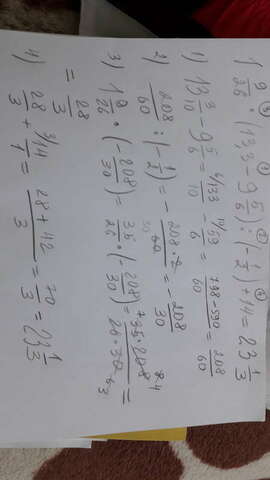 1 9/26 · (13,3 − 9 5/6) : (−1/2) + 14 = 23 1/3
1) 13 3/10 − 9 5/6 = 133/10 − 59/6 = (798−590)/60 = 208/60
2) 208/60 : (−1/2) = −(208·2)/60 = −208/30
3) 1 9/26 · (−208/30) = 35/26 · (−208/30) = (35·208)/(26·30) =
= 28/3
4) 28/3 + 14/1 = (28+42)/3 = 70/3 = 23 1/3